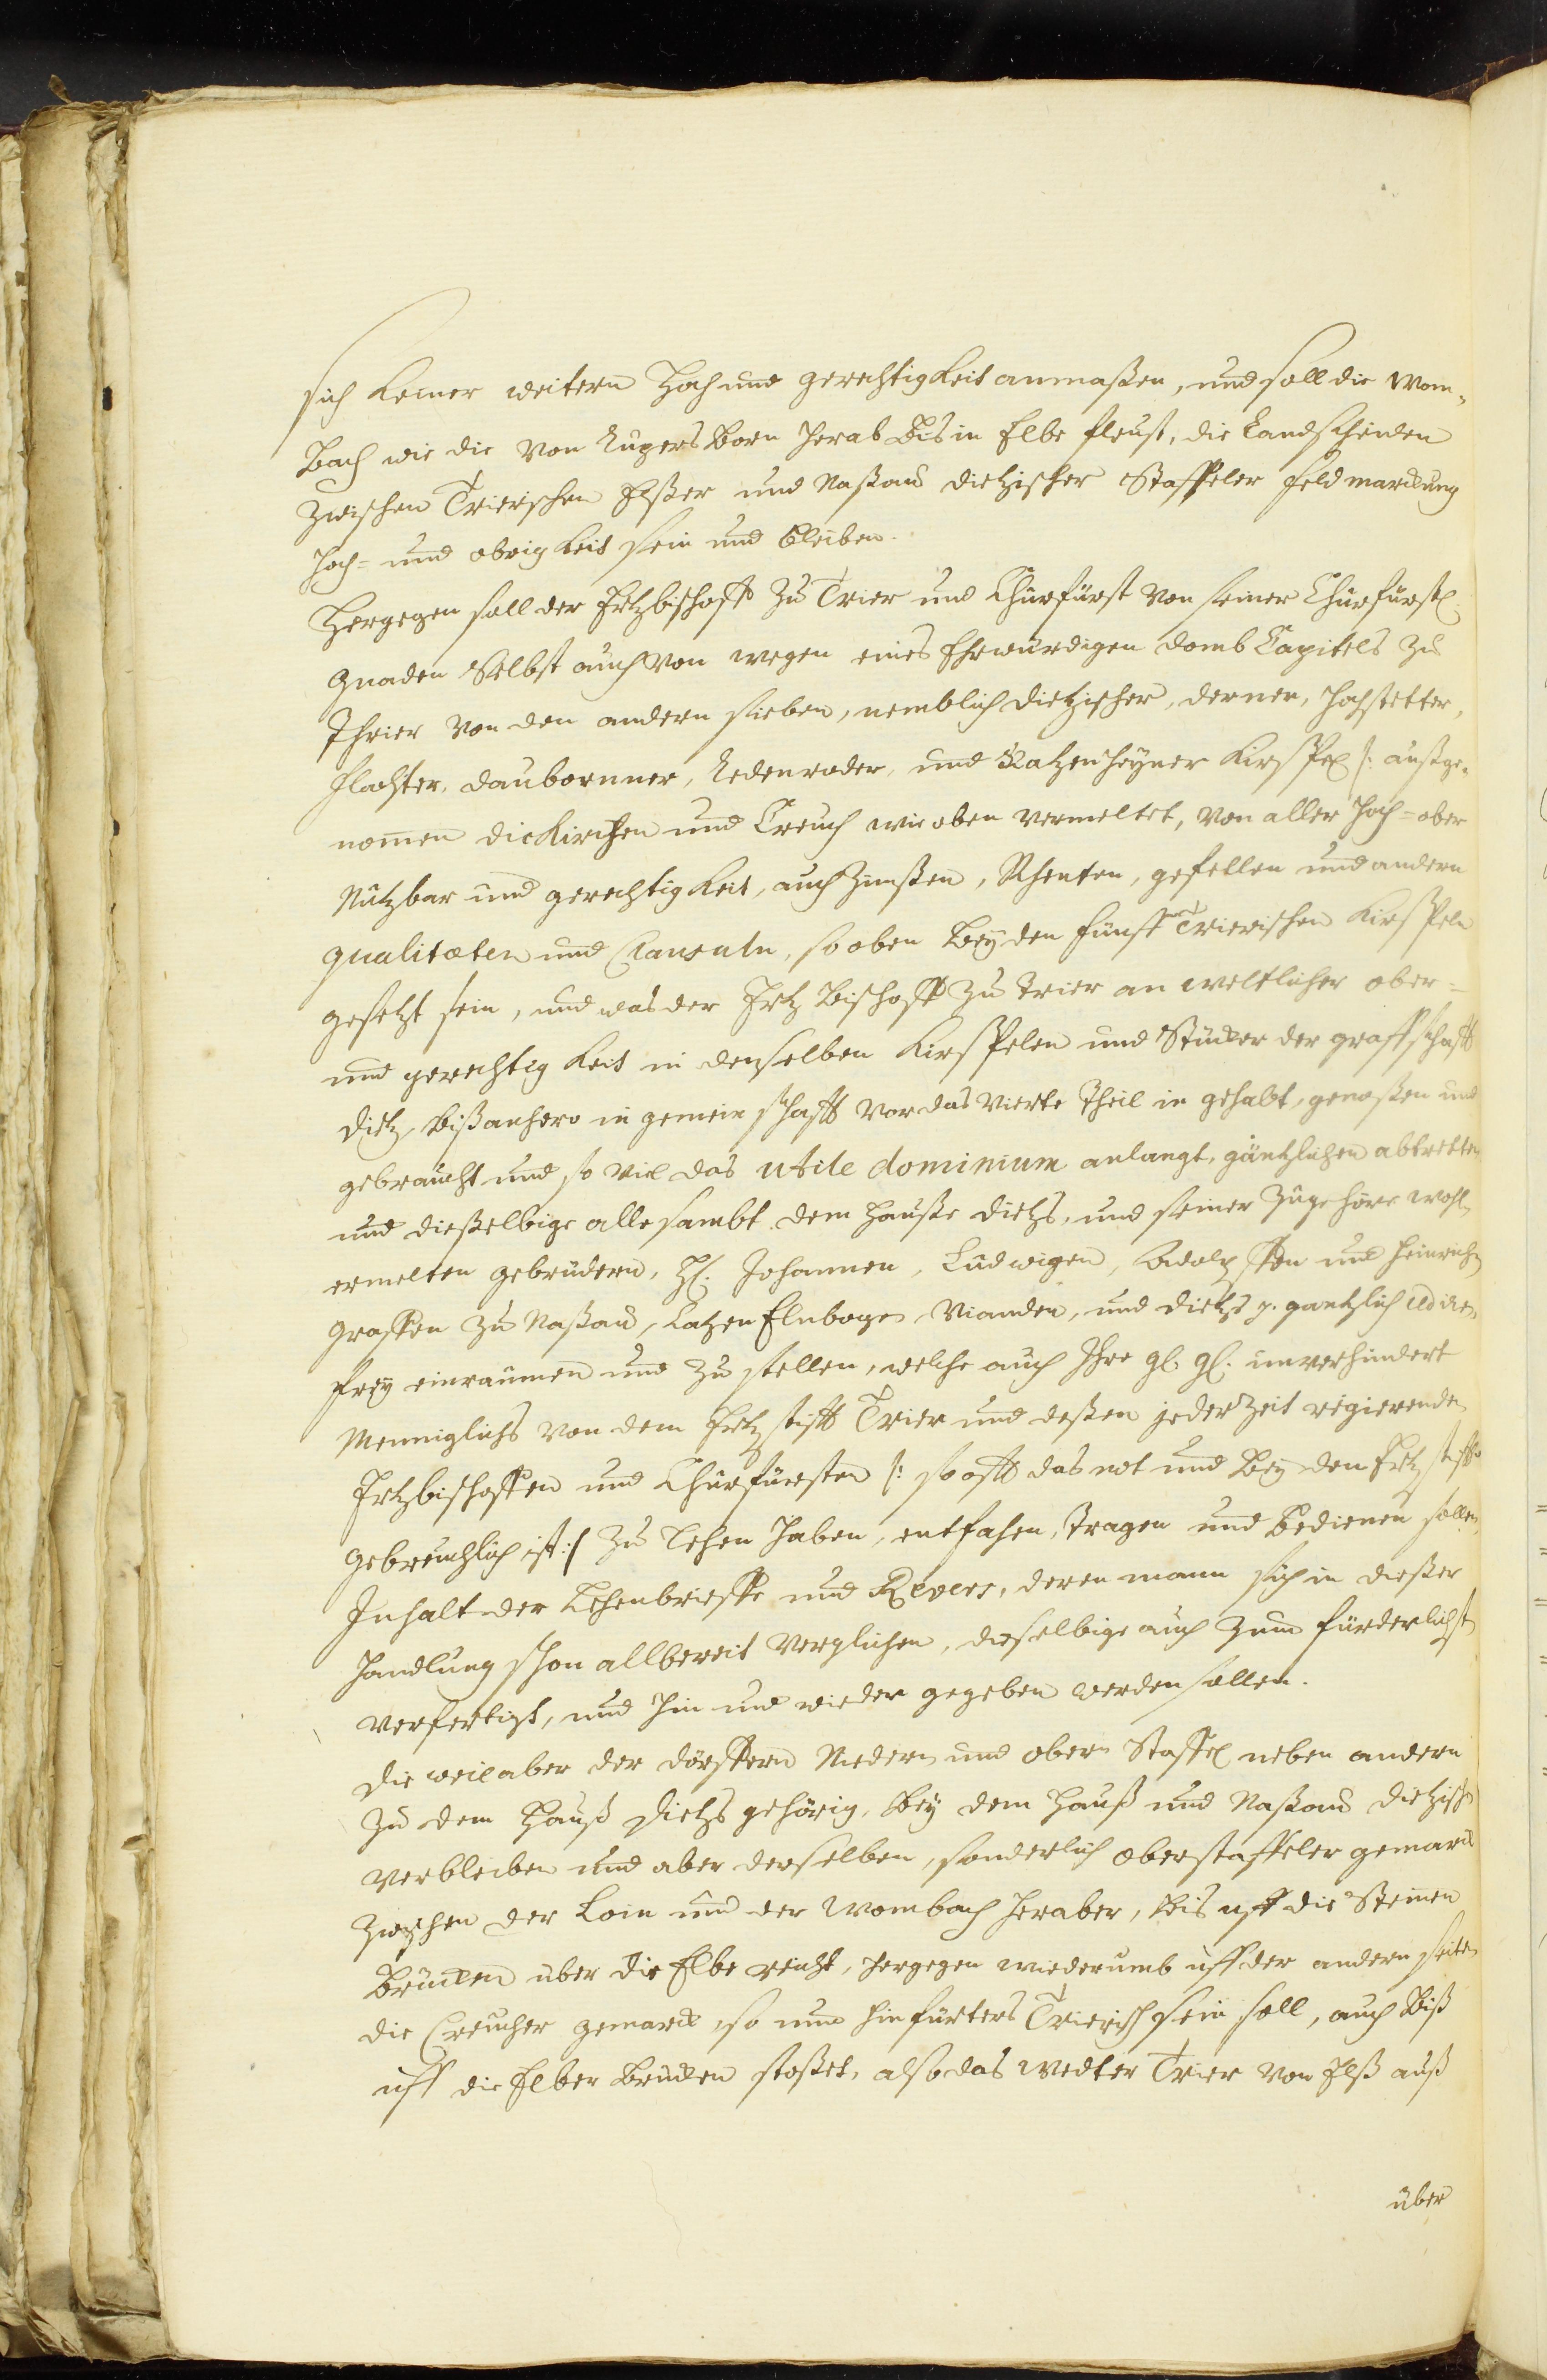 sich keiner weitern Hoch und gerechtigkeit anmaßen, und soll die Wom-
bach wie die von Rupersborn herab bis in Elbe fleust, die Landscheiden
zwischen Trierischen Elßer und Naßaw Dietzischer Staffeler feldmarckung
hoch= und obrigkeit sein und bleiben.
Hergegen soll der Ertzbischoff zu Trier und Churfürst von seiner Churfürstl.
Gnaden Selbst auch von wegen eines Ehrwürdigen domb Capitels zu
Thrier von den andern sieben, nemblich Dietzischer, derner, Hohstetter,
flachter, daubornner, Redenroder, und Katzenheyner Kirspel /: außge-
nomen die Kirchen und Creuch wie oben vermeltet, von aller Hoch= ober
Nutzbar und gerechtigkeit, auch Zinßen, Rhenten, gefellen und andern
qualitæten und Clausuln, so oben bey den fünff Trierischen Kirspeln
gesetzt sein, und was der Ertz Bischoff zu Trier an weltlicher ober=
und gerechtigkeit in denselben Kirspelen und Stücker der graffschafft
Dietz, bißanhero in gemeinschafft vor das Vierte Theil in gehabt, genoßen und
gebraucht und so viel das utile dominium anlangt, gäntzlichen abtretten
und dießelbige alle sambt dem Hauße Dietz, und seiner Zugehöre wohl
ermelten gebrüdern, H. Johannen, Ludwigen, Adolpffen und Heinrichen
Graffen zu Naßaw, Catzen Elnbogen, Vianden, und Dietz p. gantzlich
frey einraumen und zu stellen, welche auch Ihre gl. gl. unverhindert
Menniglichs von dem Ertzstifft Trier und deßen jederzeit regierenden
Ertzbischoffen und Churfürsten /: so offt das not und bey den Ertzstifft
gebreuchlich ist :/ zu Lehen haben, entfahen, tragen und bedienen sollen,
Inhalt der Lehenbrieffe und Revers, deren mann sich in dießer
Handlung schon allbereit verglichen, dieselbige auch zum fürderlichst
verfertigt, und hin und wieder gegeben werden sollen.
Die weil aber der dörffern Niedern und obern Staffel neben andern
zu dem Hauß Dietz gehörig, bey dem Hauß und Naßaw Dietzisch
verbleiben und aber derselben, sonderlich oberstaffeler gemarck
zwischen der Loin und der Wombach heraber, bis uff die Steinen
Brücken über die Elbe reicht, hergegen wiederumb uff der andern seiten
die Creucher gemarck so nun hinfürters Trierisch sein soll, auch biß
uff die Elber Brücken stoßet, also das wedter Trier von Elß auß
über